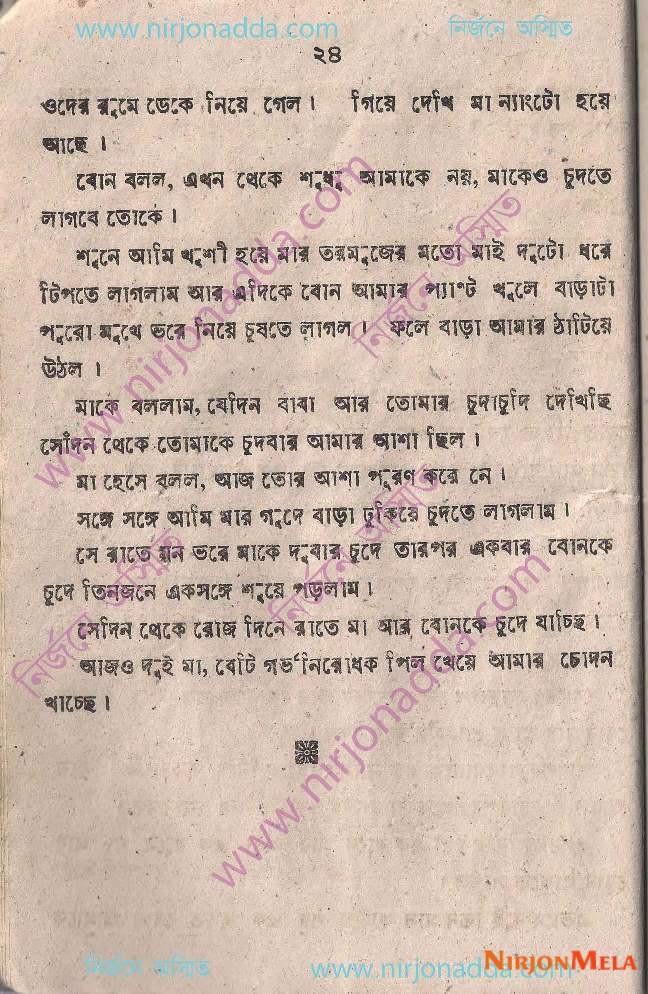 www.nirjonadda.com নির্জনে অস্মিত
২৪
ওদের রুমে ডেকে নিয়ে গেল। গিয়ে দেখি মা ন্যাংটো হয়ে
আছে।
বোন বলল, এখন থেকে শুধু আমাকে নয়, মাকেও চুদতে
লাগবে তোকে।
শুনে আমি খুশী হয়ে মার তরমুজের মতো মাই দুটো ধরে
টিপতে লাগলাম আর এদিকে বোন আমার প্যাণ্ট খুলে বাড়াটা
পুরো মুখে ভরে নিয়ে চুষতে লাগল। ফলে বাড়া আমার ঠাটিয়ে
উঠল।
মাকে বললাম, যেদিন বাবা আর তোমার চুদাচুদি দেখিছি
সেদিন থেকে তোমাকে চুদবার আমার আশা ছিল।
মা হেসে বলল, আজ তোর আশা পূরণ করে নে।
সঙ্গে সঙ্গে আমি মার গুদে বাড়া ঢুকিয়ে চুদতে লাগলাম।
সে রাতে মন ভরে মাকে দুবার চুদে তারপর একবার বোনকে
চুদে তিনজনে একসঙ্গে শুয়ে পড়লাম।
সেদিন থেকে রোজ দিনে রাতে মা আর বোনকে চুদে যাচ্ছি।
আজও দুই মা, বেটি গর্ভনিরোধক পিল খেয়ে আমার চোদন
খাচ্ছে।
www.nirjonadda.com
নির্জনে অস্মিত
www.nirjonadda.com
নির্জনে অস্মিত
নির্জনে অস্মিত
NIRJONMELA
নির্জনে অস্মিত www.nirjonadda.com